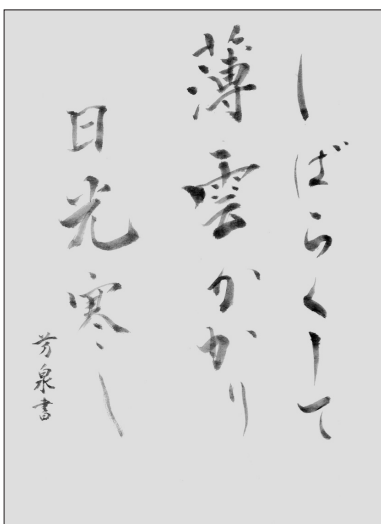 しばらくして
薄雲かかり
日光寒し
芳泉書